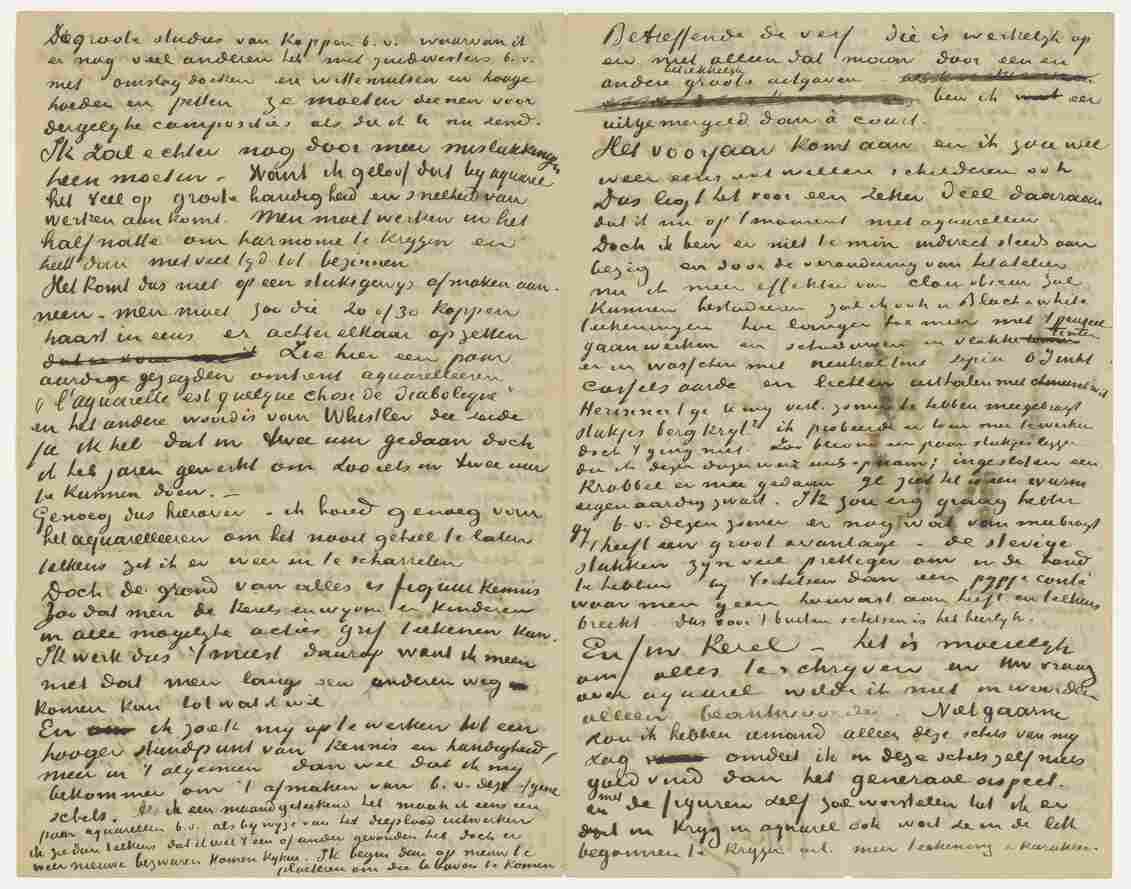 De groote studies van koppen b.v. waarvan ik
er nog veel anderen heb met zuidwesters b.v.
met omslagdoeken en wittemutsen en hooge
hoeden en petten ze moeten dienen voor
dergelyke composities als die ik u nu zend.
Ik zal echter nog door meer mislukkingen
heen moeten – Want ik geloof dat by aquarel
het veel op groote handigheid en snelheid van
werken aankomt. Men moet werken in het
halfnatte om harmonie te krygen en
heeft dan niet veel tyd tot bezinnen
Het komt dus niet op een stuksgewys afmaken aan.
neen – men moet zoo die 20 of 30 koppen
haast in eens er achter elkaar opzetten
Zie hier een paar
aardige gezegden omtrent aquarelleeren
"l'aquarelle est quelque chose de diabolique"
en het andere woord is van Whistler die zeide
ja ik heb dat in twee uur gedaan doch
ik heb jaren gewerkt om zoo iets in twee uur
te kunnen doen. –
Genoeg dus hierover – ik houd genoeg van
het aquarelleeren om het nooit geheel te laten
telkens zit ik er weer in te scharrelen
Doch de grond van alles is figuurkennis
zoodat men de kerels en wyven en kinderen
in alle mogelyke acties grif teekenen kan.
Ik werk dus 't meest daarop want ik meen
niet dat men langs een anderen weg
komen kan tot wat ik wil
En ik zoek my op te werken tot een
hooger standpunt van kennis en handigheid,
meer in 't algemeen dan wel dat ik my
bekommer om 't afmaken van b.v. deze of gene
schets. Als ik een maand geteekend heb maak ik eens een
paar aquarellen b.v. als by wyze van het dieplood uitwerpen
ik zie dan telkens dat ik wel 't een of ander gevonden heb doch er
weer nieuwe bezwaren komen kyken. Ik begin dan op nieuw te
ploeteren om die te boven te komen
Betreffende de verf die is werkelyk op
en niet alleen dat maar door een en
andere betrekkelyk groote uitgaven
ben ik een
uitgemergeld dan à court.
Het voorjaar komt aan en ik zou wel
weer eens wat willen schilderen ook
Dus ligt het voor een zeker deel daaraan
dat ik nu op 't moment niet aquarelleer
Doch ik ben er niet te min indirect steeds aan
bezig en door de verandering van het atelier
nu ik meer effekten van clair obscur zal
kunnen bestudeeren zal ik ook in Black & white
teekeningen hoe langer hoe meer met 't penseel
gaan werken en schaduwen in vlakke tinten
er in wasschen met neutraltint sepia O.I. inkt
Casselsaarde en lichten uithalen met chineeschwit
Herinnert ge u my verl. zomer te hebben meegebragt
stukjes bergkryt? ik probeerde er toen mee te werken
doch 't ging niet. Zoo bleven een paar stukjes liggen
die ik dezer dagen weer eens opnam; ingesloten een
krabbel er mee gedaan ge ziet het is een warm
eigenaardig zwart. Ik zou erg graag hebben
gy b.v. dezen zomer er nog wat van meebragt
't heeft een groot avantage – de stevige
stukken zyn veel prettiger om in de hand
te hebben by 't schetsen dan een pypje conté
waar men geen houvast aan heeft en telkens
breekt. Dus voor 't buiten schetsen is het heerlyk.
Enfin kerel – het is moeielyk
om alles te schryven en uw vraag
over aquarel wilde ik niet in woorden
alleen beantwoorden. Niet gaarne
zou ik hebben iemand alleen deze schets van my
zag omdat ik in deze schets zelf niets
goed vind dan het generaal aspect.
en met de figuren zelf zoo worstelen tot ik er
dat in kryg in aquarel ook wat ze in de lett
begonnen te krygen nl. meer teekening & karakter.